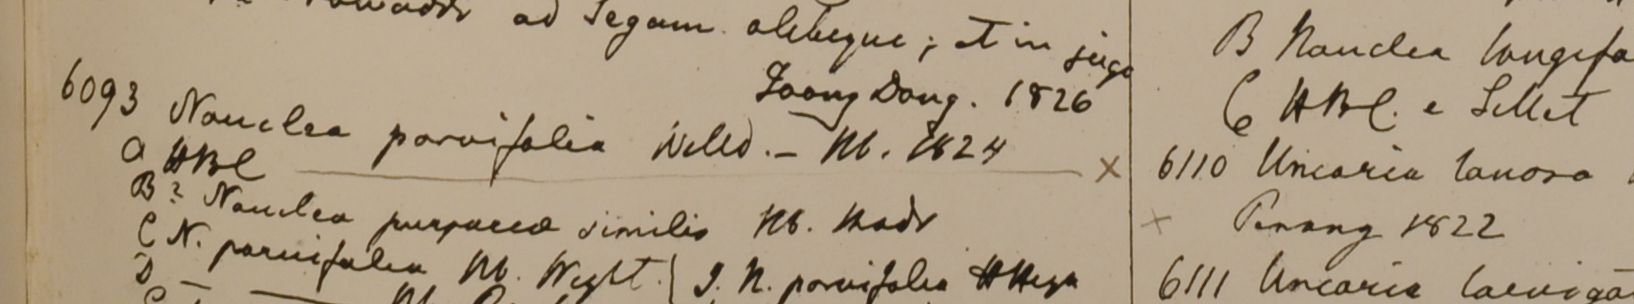 ad Segam olebeque; et in juga
Toong Dong. 1826
6093 Nauclea parvifolia Willd. – Hb. 1824 ×
a HBC
B? Nauclea purpurea similis Hb. Madr
C N. parvifolia Hb. Wight.
D
J. N. parvifolia HHeyn
B Nauclea longifo
C HBC. e Sillet
6110 Uncaria lanosa
× Penang 1822
6111 Uncaria laeviga